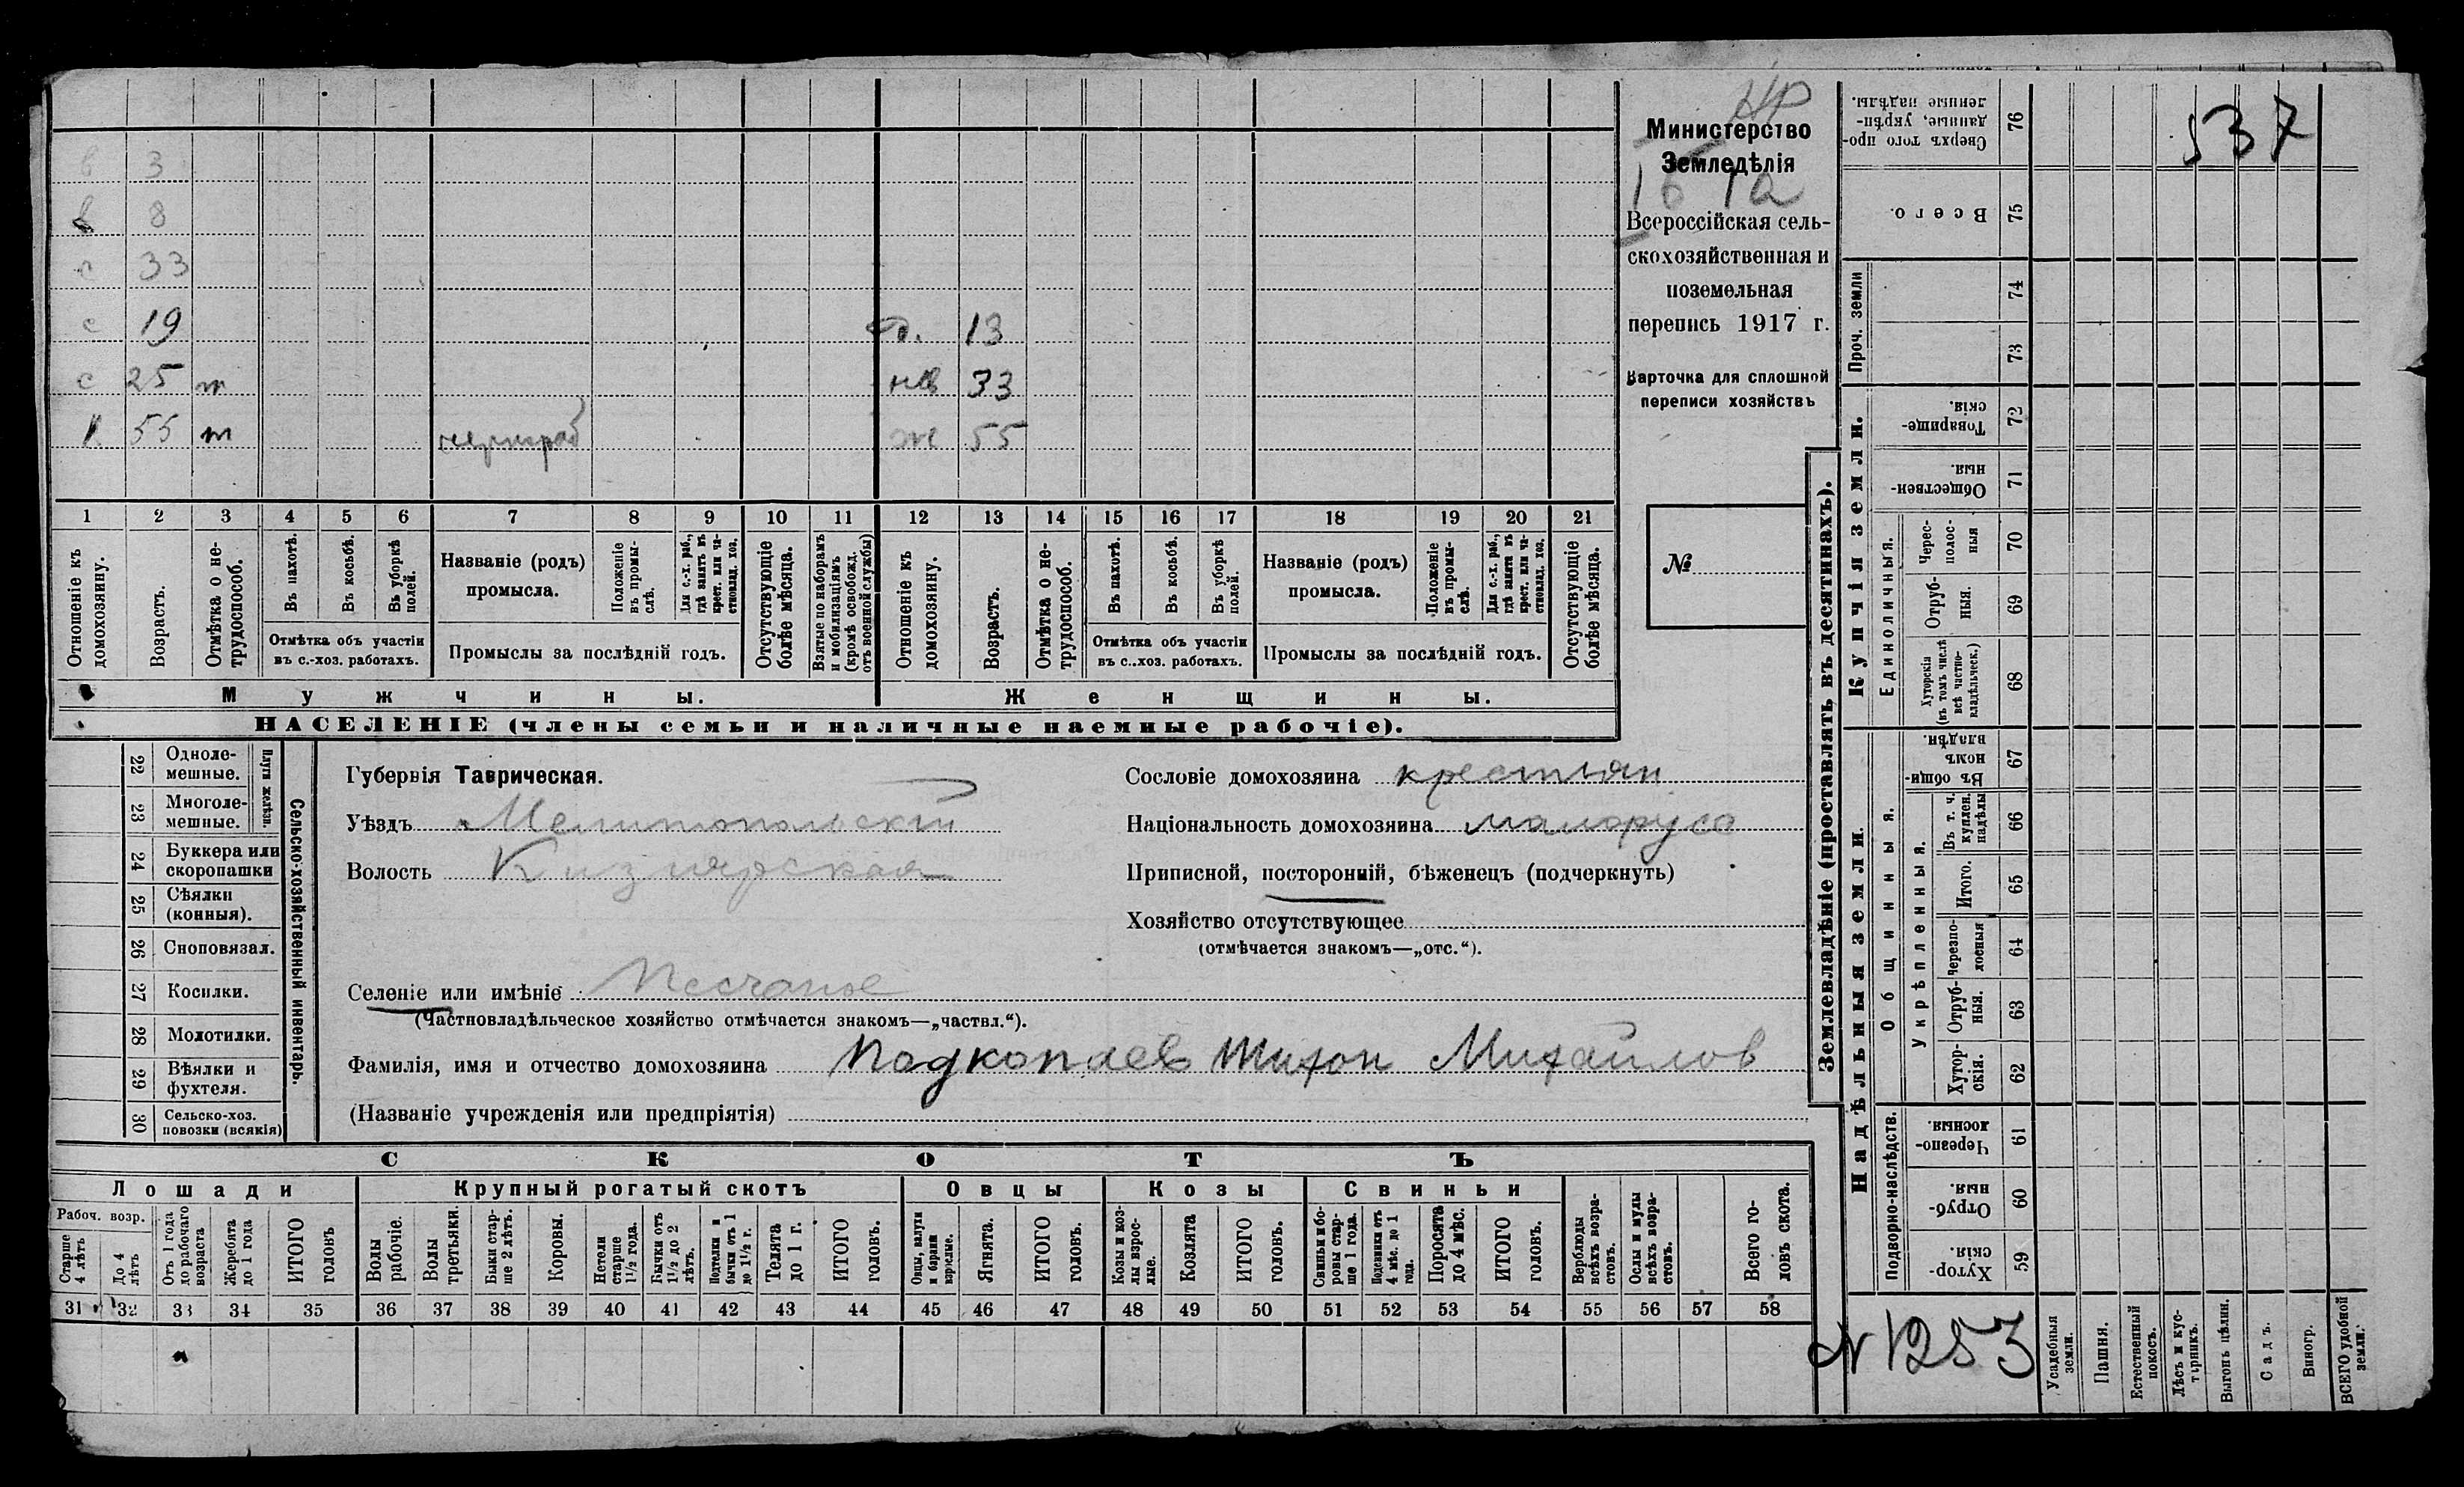 НР
Министерство
Земледѣлія
1б 1а
Всероссійская сель-
скохозяйственная и
поземельная
перепись 1917 г.
Карточка для сплошной
переписи хозяйствъ
№
537
в 3
в 8
с 33
с 19 д. 13
с 25 т нв 33
55 т чернораб ж 55
1 2 3 4 5 6 7 8 9 10 11 12 13 14 15 16 17 18 19 20 21
Отношеніе къ домохозяину.
Возрастъ.
Отмѣтка о не-трудоспособ.
Въ пахотѣ.
Въ косьбѣ.
Въ уборкѣ полей.
Отмѣтка объ участіи
въ с.-хоз. работахъ.
Названіе (родъ)
промысла.
Положеніе въ промы-слѣ.
Для с.-х. раб., гдѣ занятъ въ крест. или ча-стновлад. хоз.
Промыслы за послѣдній годъ.
Отсутствующіе болѣе мѣсяца.
Взятые по наборамъ и мобилизаціямъ (кромѣ освобожд. отъ военной службы)
Отношеніе къ домохозяину.
Возрастъ.
Отмѣтка о не-трудоспособ.
Въ пахотѣ.
Въ косьбѣ.
Въ уборкѣ полей.
Отмѣтка объ участіи
въ с..хоз. работахъ.
Названіе (родъ)
промысла.
Положеніе въ промы-слѣ.
Для с.-х. раб., гдѣ занята въ крест. или ча-стновлад. хоз.
Промыслы за послѣдній годъ.
Отсутствующіе болѣе мѣсяца.
Мужчины. Женщины.
НАСЕЛЕНІЕ (члены семьи и наличные наемные рабочіе).
Сельско-хозяйственный инвентарь.
Плуги желѣзн.
22 Одноле-мешные.
23 Многоле-мешные.
24 Буккера или скоропашки
25 Сѣялки (конныя).
26 Сноповязал.
27 Косилки.
28 Молотилки.
29 Вѣялки и фухтеля.
30 Сельско-хоз. повозки (всякія)
Губернія Таврическая.
Уѣздъ Мелитопольскій
Волость Кизіярская
Сословіе домохозяина крестьян
Національность домохозяина малорусс
Приписной, посторонній, бѣженецъ (подчеркнуть)
Хозяйство отсутствующее
(отмѣчается знакомъ—„отс.“).
Селеніе или имѣніе Песчаное
(Частновладѣльческое хозяйство отмѣчается знакомъ—„частвл.“).
Фамилія, имя и отчество домохозяина Подкопаев Тихон Михайлов
(Названіе учрежденія или предпріятія)
СКОТЪ
Лошади Крупный рогатый скотъ Овцы Козы Свиньи
Рабоч. возр.
Старше 4 лѣтъ
До 4 лѣтъ
Отъ 1 года до рабочаго возраста
Жеребята до 1 года
ИТОГО головъ
Волы рабочіе.
Волы третьяки.
Быки стар-ше 2 лѣтъ.
Коровы.
Нетели старше 1½ года.
Бычки отъ 1½ до 2 лѣтъ.
Подтелки и бычки отъ 1 до 1½ г.
Телята до 1 г.
ИТОГО головъ.
Овцы, валухи и бараны взрослые.
Ягнята.
ИТОГО головъ.
Козы и коз-лы взрос-лые.
Козлята
ИТОГО головъ.
Свиньи и бо-ровы стар-ше 1 года.
Подсвинки отъ 4 мѣс. до 1 года.
Поросята до 4 мѣс.
ИТОГО головъ.
Верблюды всѣхъ возра-стовъ.
Ослы и мулы всѣхъ возра-стовъ.
Всего го-ловъ скота.
31 32 33 34 35 36 37 38 39 40 41 42 43 44 45 46 47 48 49 50 51 52 53 54 55 56 57 58
Землевладѣніе (проставлять въ десятинахъ).
Купчія земли.
Надѣльныя земли.
Сверхъ того про-данные, укрѣп-ленные надѣлы. 76
Всего. 75
Проч. земли 74
73
Товарище-скія. 72
Обществен-ныя. 71
Единоличныя.
Черес-полос-ныя 70
Отруб-ныя. 69
Хуторскія (въ томъ числѣ всѣ частно-владѣльческ.) 68
Общинныя.
Въ общи-номъ владѣн. 67
Укрѣпленныя.
Въ т. ч. куплен. надѣлы 66
Итого. 65
Черезпо-лосныя 64
Отруб-ныя. 63
Хутор-скія. 62
Подворно-наслѣдств.
Черезпо-лосныя. 61
Отруб-ныя. 60
Хутор-скія. 59
N 1253
Усадебныя земли.
Пашня.
Естественный покосъ.
Лѣсъ и кус-тарникъ.
Выгонъ цѣлин.
Садъ.
Виногр.
ВСЕГО удобной земли.